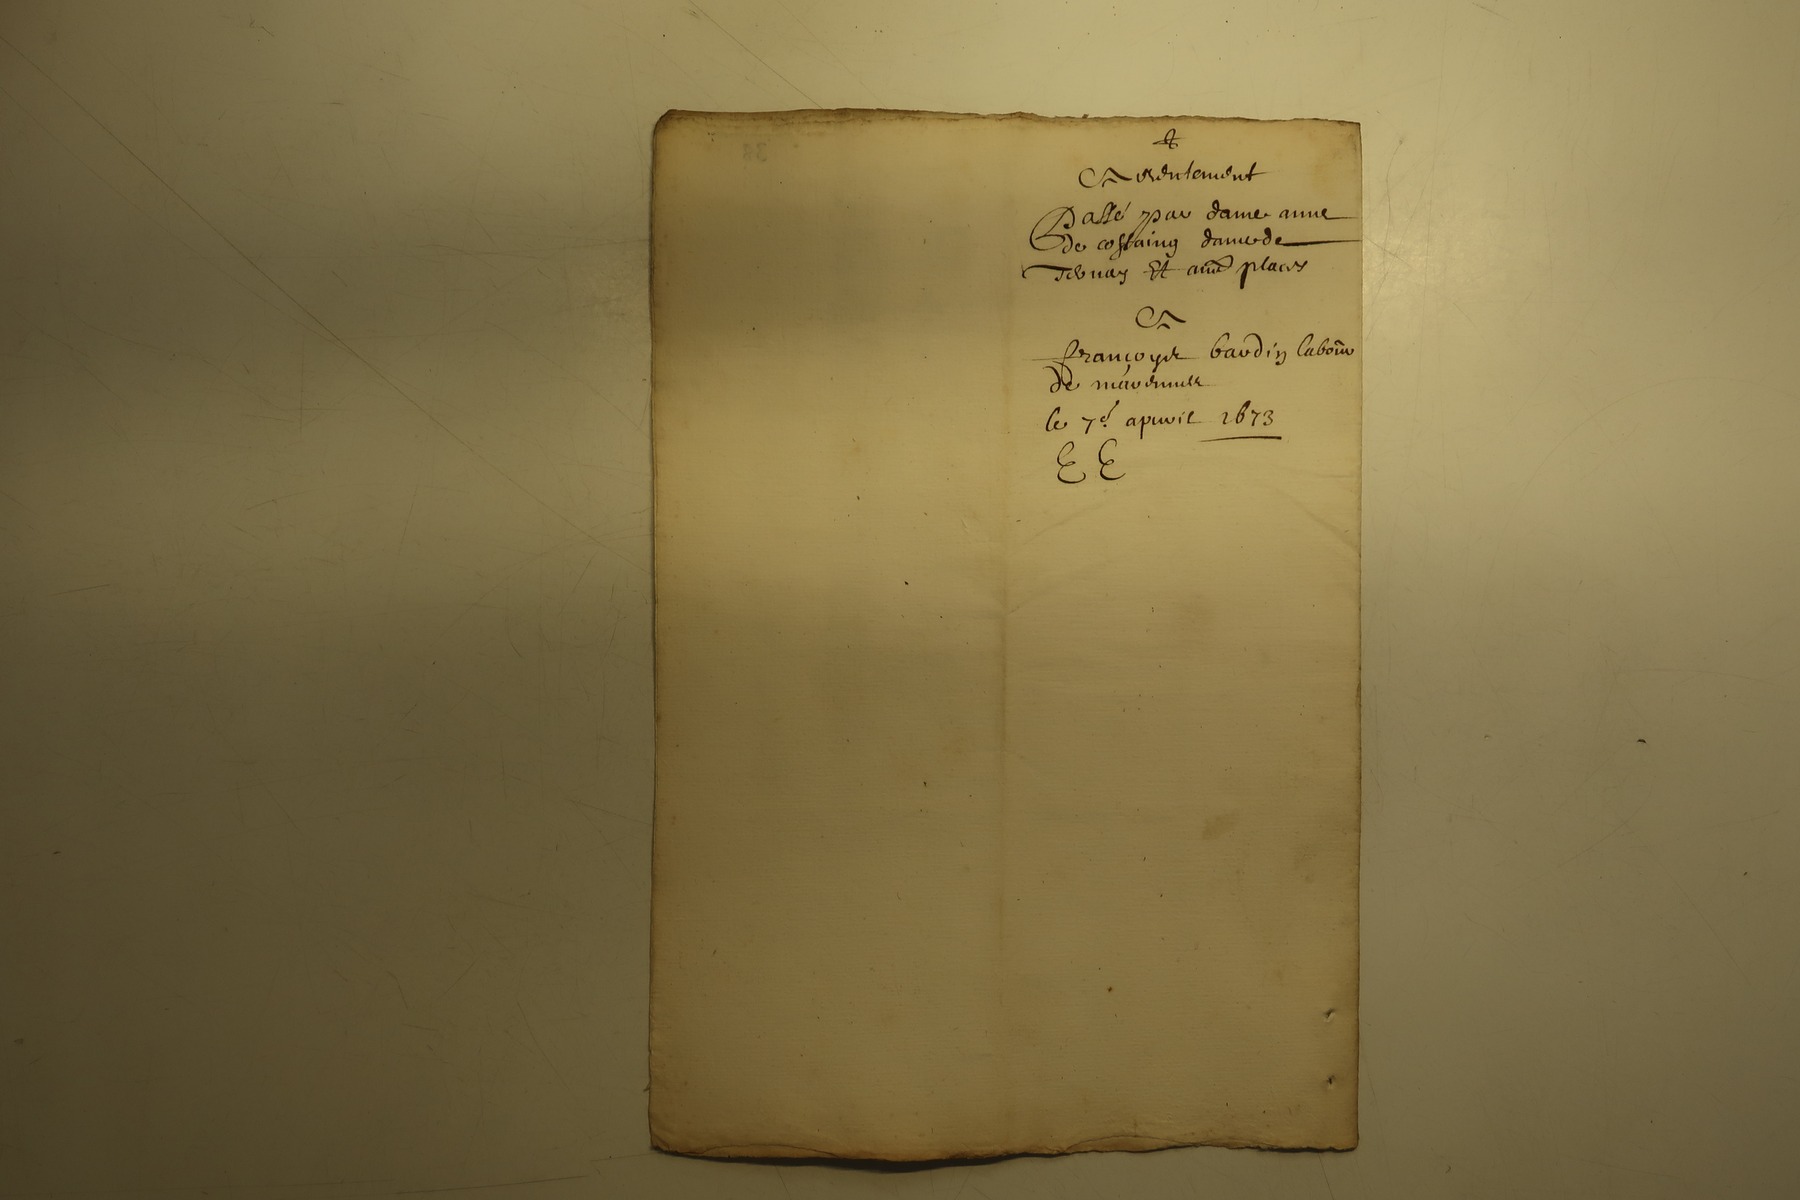 Arentement
Passé par dame anne
de costaing dame de
Ternay Et aues places
A
françoys bardin labour
de marennes
le 7e apvril 1673
EE